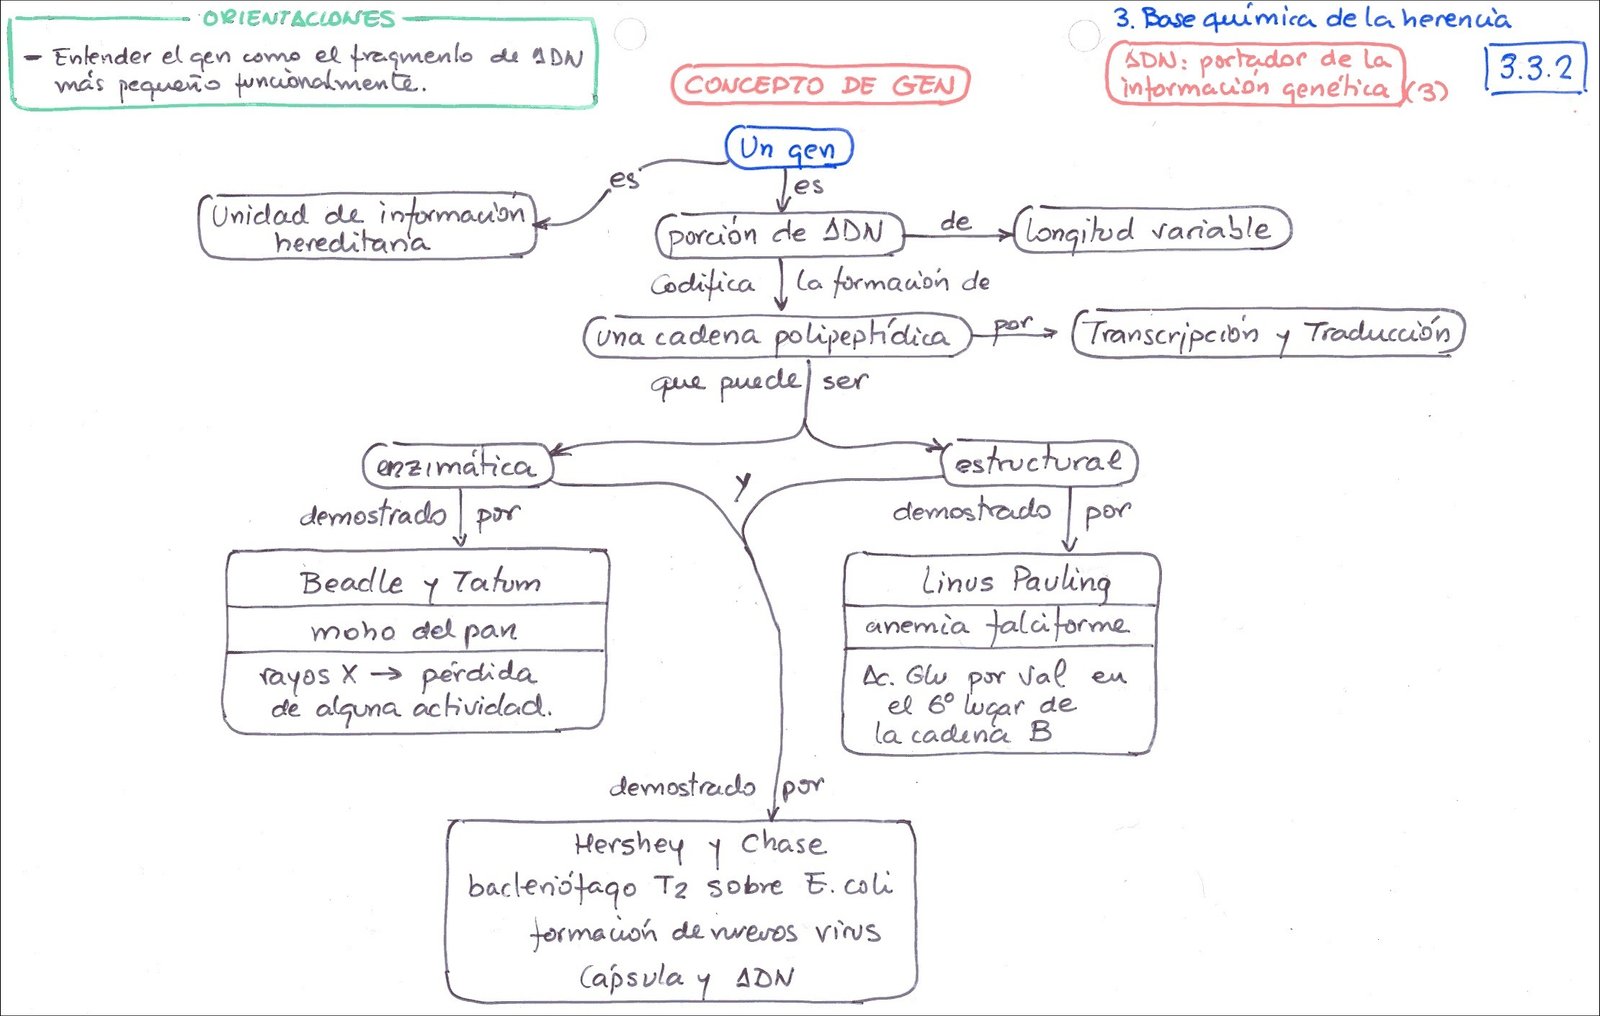 ORIENTACIONES
- Entender el gen como el fragmento de ADN
más pequeño funcionalmente.
3. Base química de la herencia
ADN: portador de la
información genética (3)
3.3.2
CONCEPTO DE GEN
Un gen
es
es
Unidad de información
hereditaria
porción de ADN
de
longitud variable
Codifica la formación de
una cadena polipeptídica
por
Transcripción y Traducción
que puede ser
enzimática
y
estructural
demostrado por
demostrado por
Beadle y Tatum
moho del pan
rayos X → pérdida
de alguna actividad.
Linus Pauling
anemia falciforme
Ac. Glu por Val en
el 6º lugar de
la cadena B
demostrado por
Hershey y Chase
bacteriófago T2 sobre E. coli
formación de nuevos virus
Cápsula y ADN